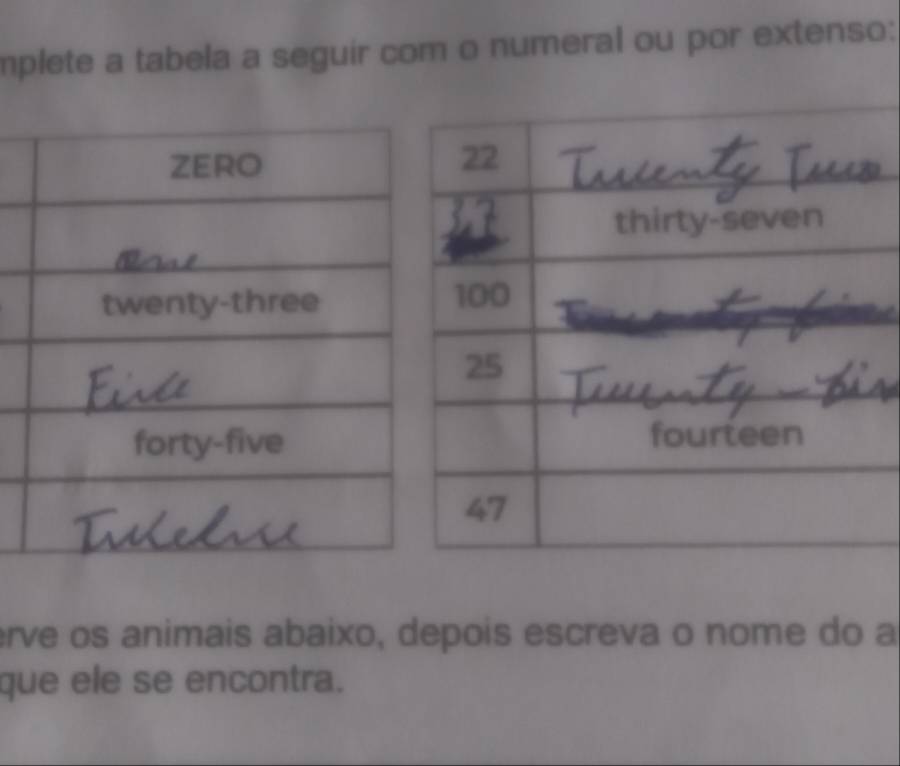 mplete a tabela a seguir com o numeral ou por extenso:
ZERO
one
twenty-three
Five
forty-five
Twelve
22 Twenty Two
37 thirty-seven
100
25 Twenty -
fourteen
47
erve os animais abaixo, depois escreva o nome do a
que ele se encontra.